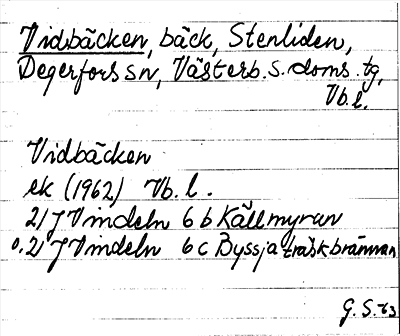 Vidbäcken, bäck, Stenliden,
Degerfors sn, Västerb. s. doms. tg,
Vb. l.
Vidbäcken
ek (1962) Vb. l.
21 J Vindeln 6 b Källmyran
0. 21 J Vindeln 6 c Byssjaträskbrännan
G. S. -63